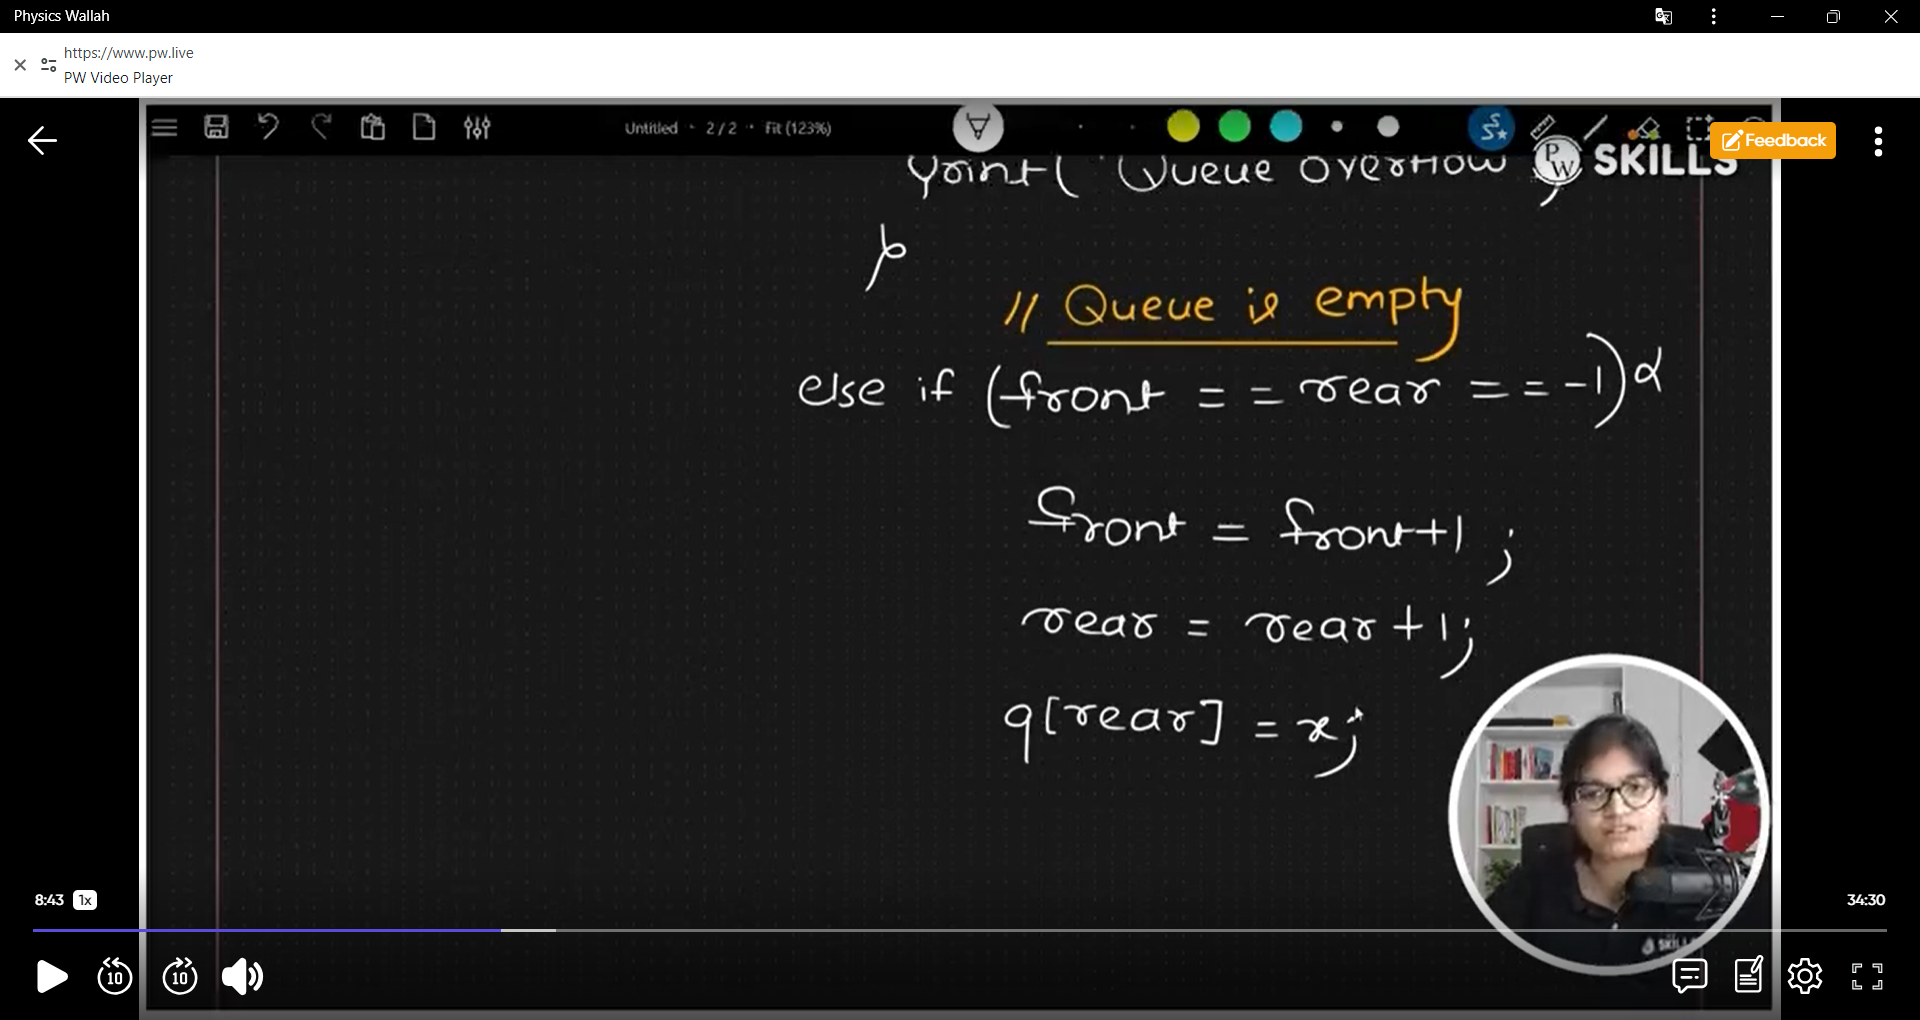 Physics Wallah
https://www.pw.live
PW Video Player
Untitled · 2/2 · Fit (123%)
Feedback
PW SKILLS
print( "Queue overflow
}
// Queue is empty
else if (front == rear == -1){
front = front+1;
rear = rear+1;
q[rear] = x;
8:43 1x
34:30
10 10
SKILLS